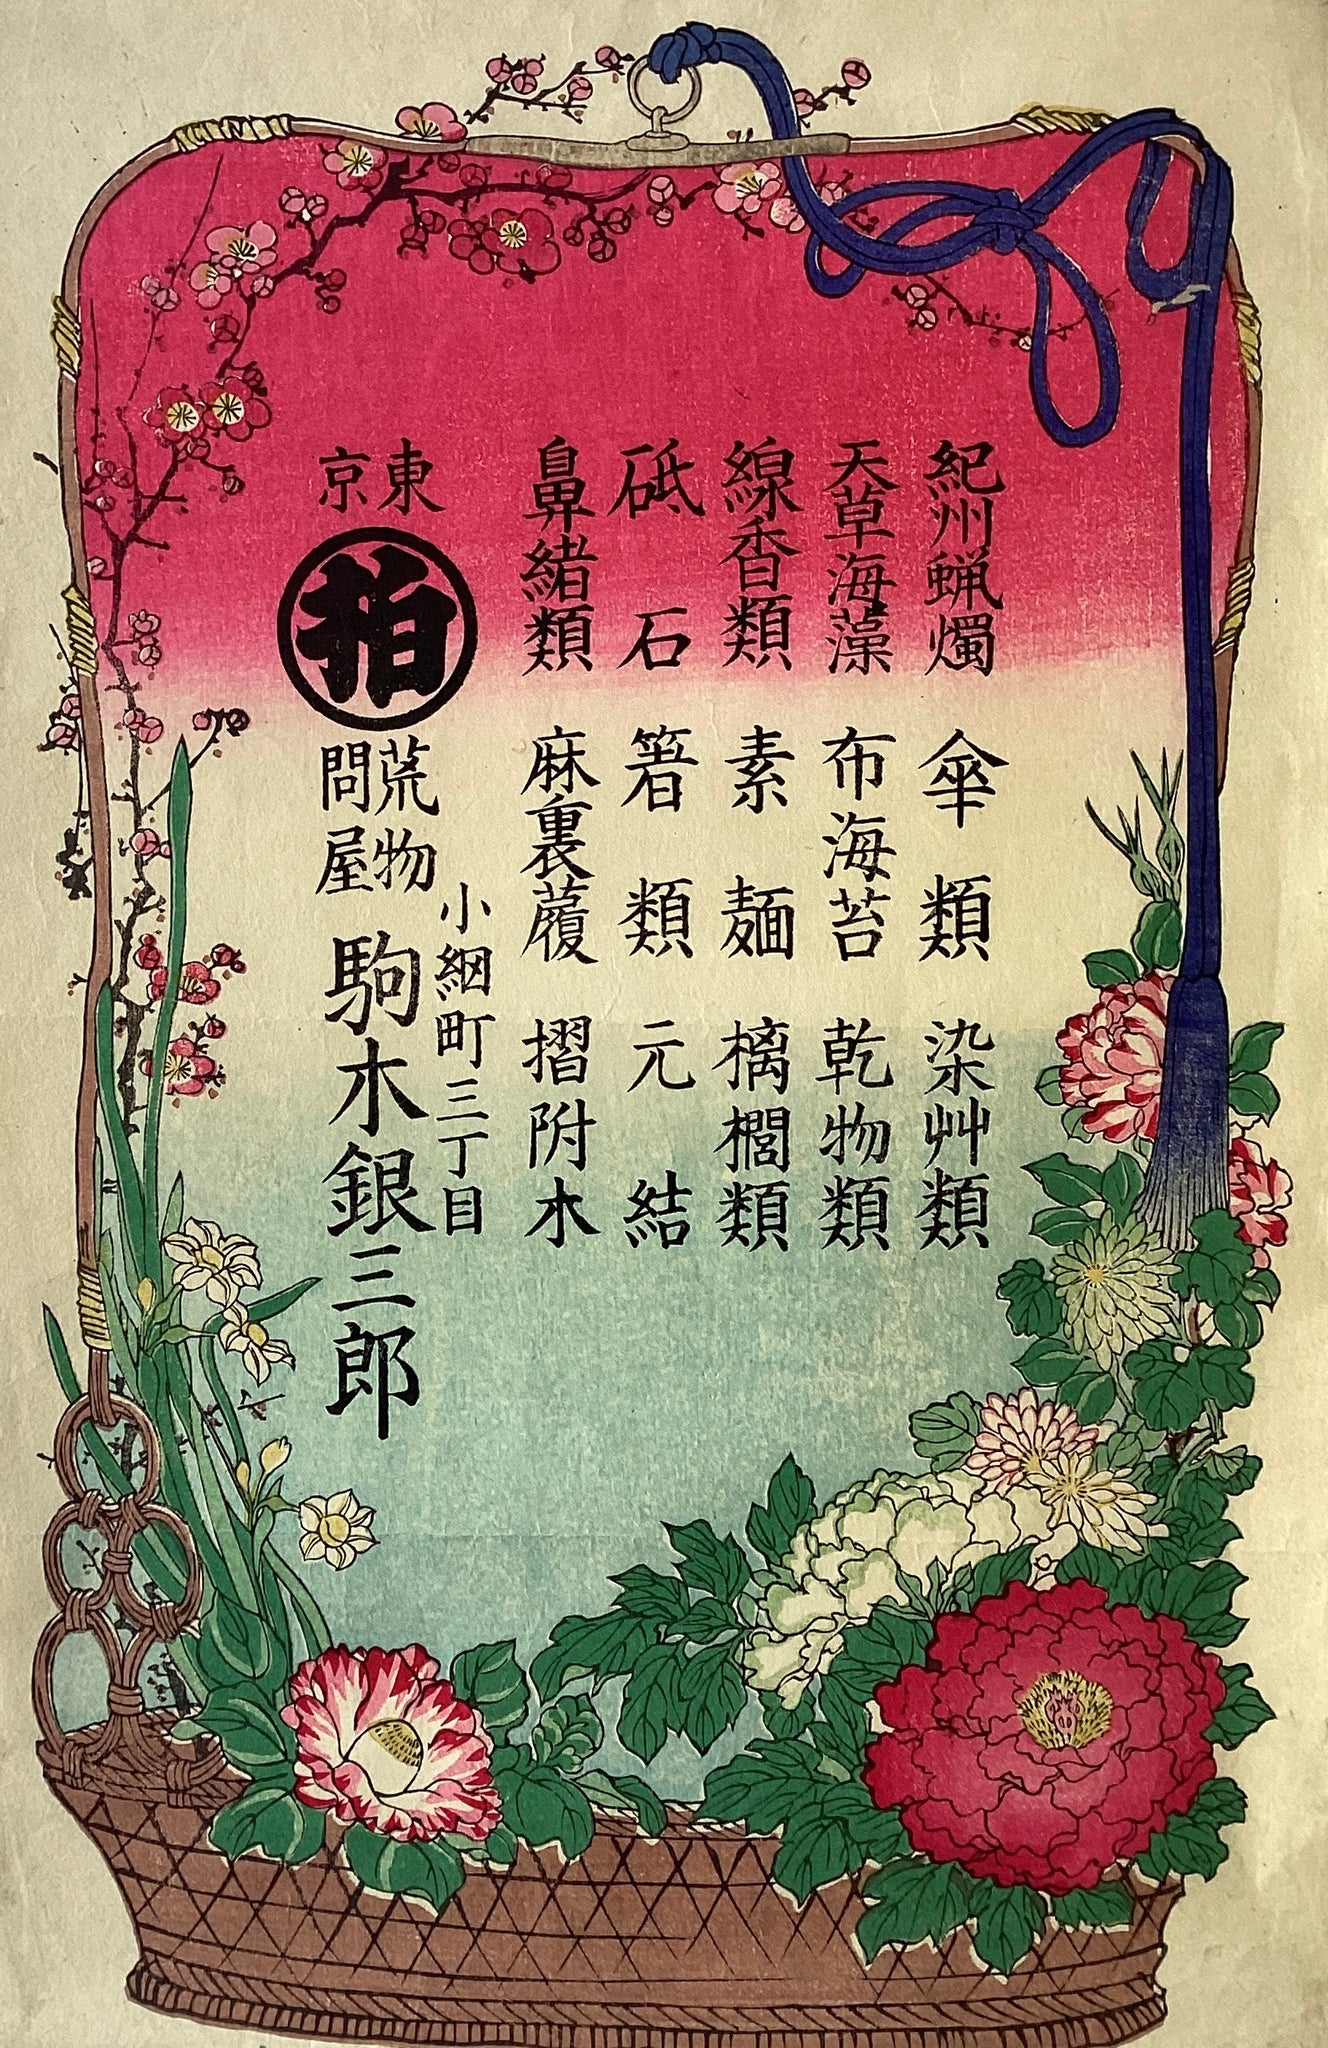 紀州蝋燭 傘類 染艸類
天草海藻 布海苔 乾物類
線香類 素麺 樆櫚類
砥石 箸類 元結
鼻緒類 麻裏蕧 摺附木
小網町三丁目
東京 拍 荒物問屋 駒木銀三郎